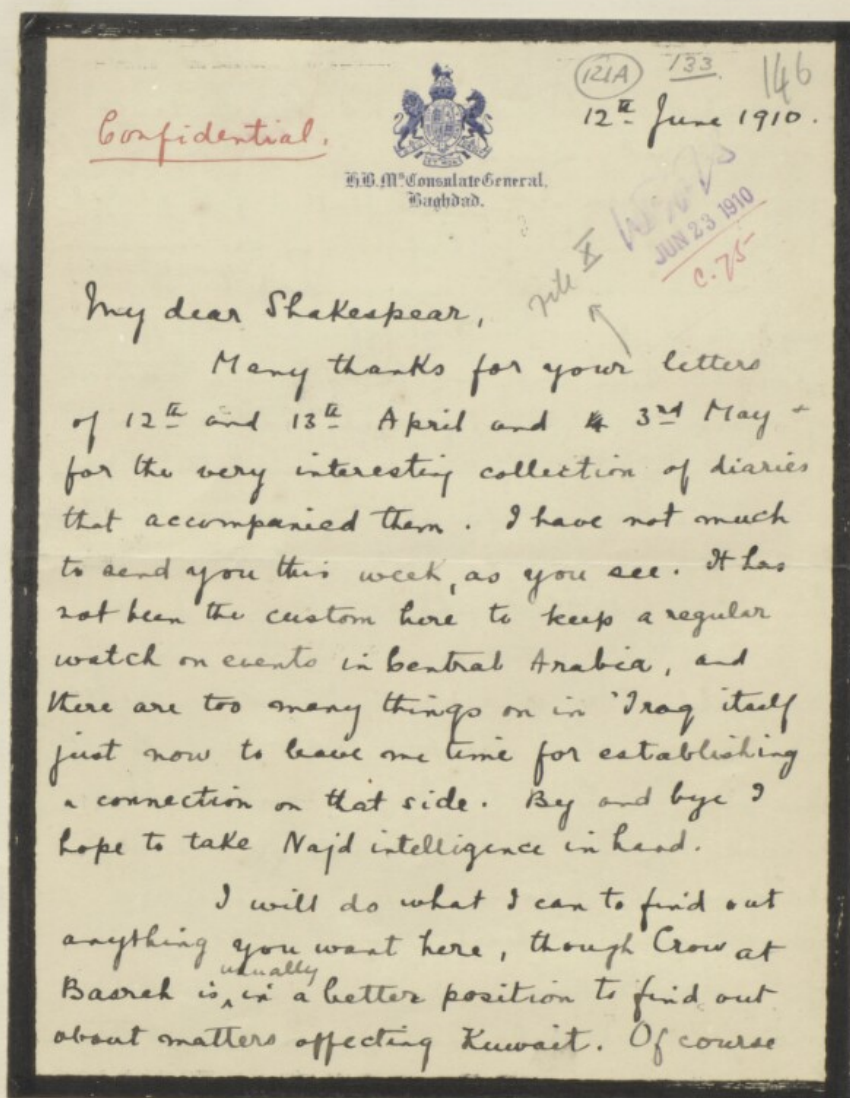 121A 133 146
Confidential.
12th June 1910.
H.B.Ms Consulate General,
Baghdad.
JUN 23 1910
C. 75
file X
My dear Shakespear,
Many thanks for your letters
of 12th and 13th April and 3rd May +
for the very interesting collection of diaries
that accompanied them. I have not much
to send you this week, as you see. It has
not been the custom here to keep a regular
watch on events in Central Arabia, and
there are too many things on in 'Iraq itself
just now to leave me time for establishing
a connection on that side. By and bye I
hope to take Najd intelligence in hand.
I will do what I can to find out
anything you want here, though Crow at
Basrah is usually in a better position to find out
about matters affecting Kuwait. Of course